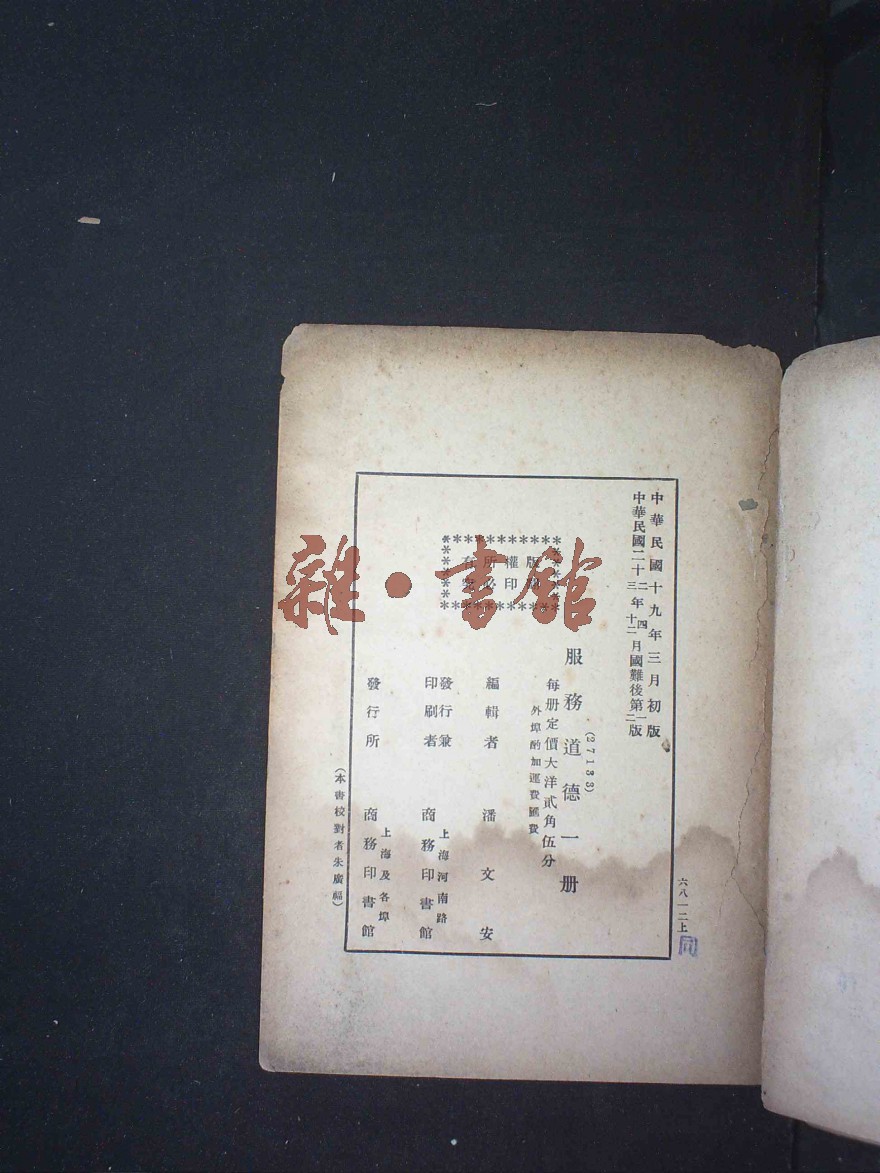 中華民國十九年三月初版
中華民國二十二年四月國難後第一版
二十三年十二月國難後第二版
六八一二上
同
版權所有
翻印必究
(27133)
服務道德一册
每册定價大洋貳角伍分
外埠酌加運費匯費
編輯者 潘文安
發行兼印刷者 上海河南路 商務印書館
發行所 上海及各埠 商務印書館
(本書校對者朱廣福)
雜·書館